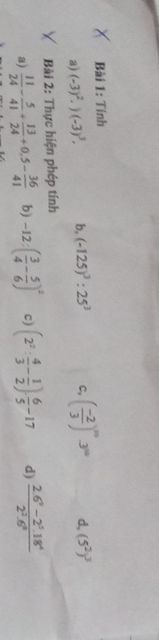 Bài 1: Tính
a) (-3)². ) (-3)³. b, (-125)³ : 25³ c, (-2/3)¹⁰ . 3¹⁰ d, (5²)³
Bài 2: Thực hiện phép tính
a) 11/24 - 5/41 + 13/24 + 0,5 - 36/41 b) -12.(3/4 - 5/6)² c) (2² : 4/3 - 1/2) . 6/5 - 17 d)